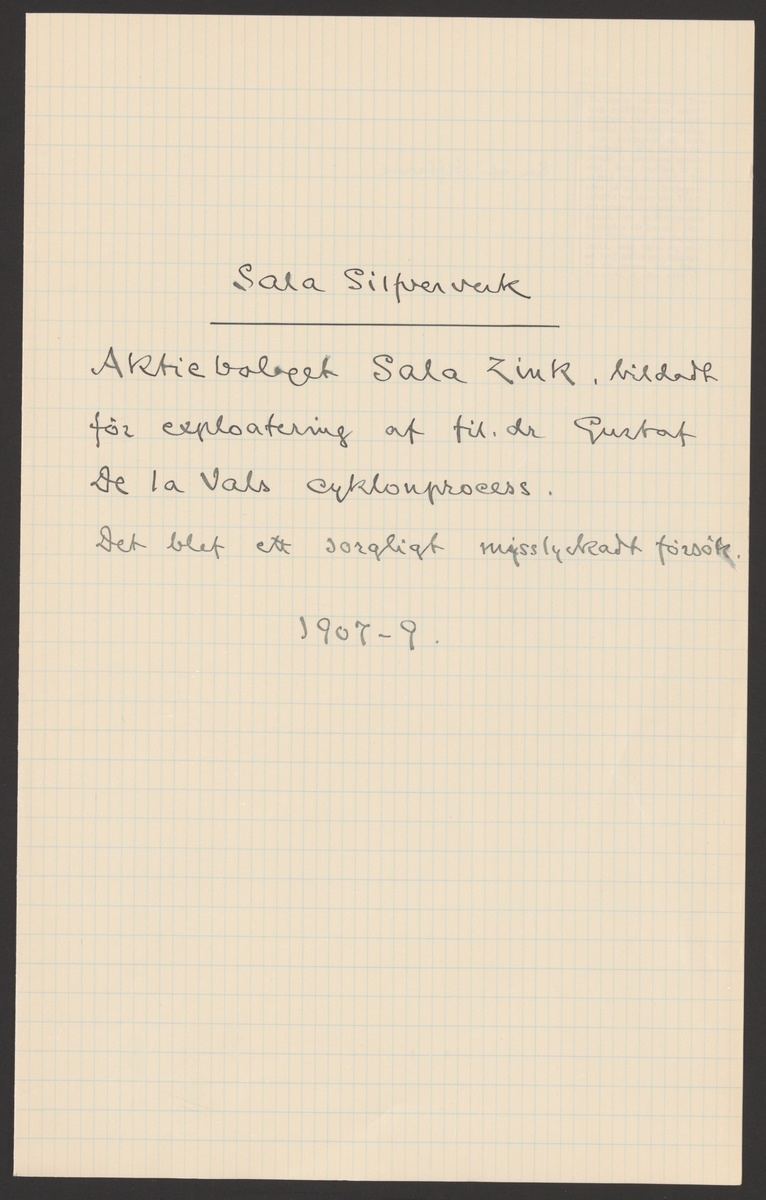 Sala Silfververk
Aktiebolaget Sala Zink, bildadt
för exploatering af fil. dr Gustaf
De la Vals cyklonprocess.
Det blef ett sorgligt mysslyckadt försök.
1907-9.